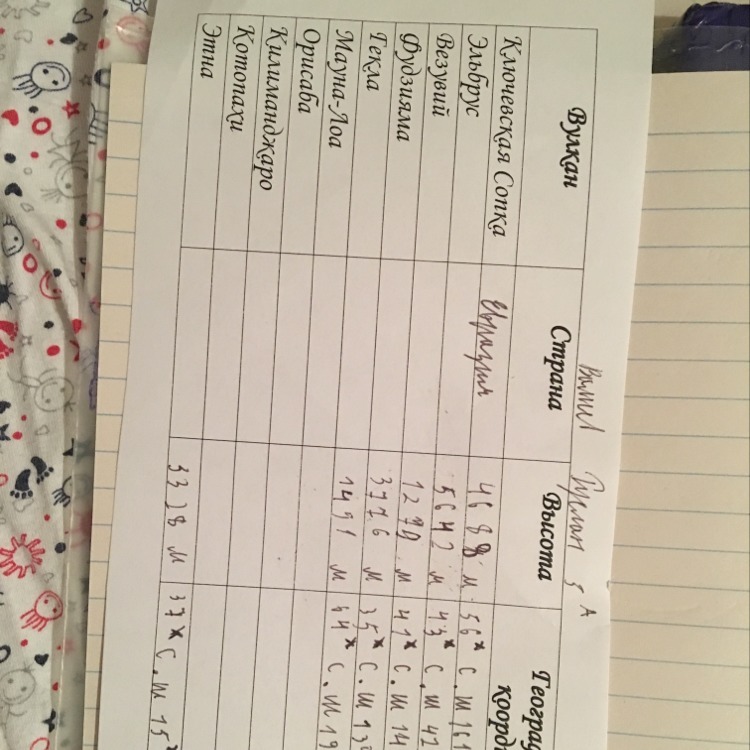 5 А
Вулкан Страна Высота Геогра
коорд
Ключевская Сопка 4688 м 56* с.ш 161
Эльбрус 5642 м 43* с.ш 42
Везувий 1279 м 41* с.ш 14
Фудзияма 3776 м 35* с.ш 13
Гекла 1491 м 64* с.ш 19
Мауна-Лоа
Орисаба
Килиманджаро
Котопахи
Этна 3328 м 37* с.ш 15